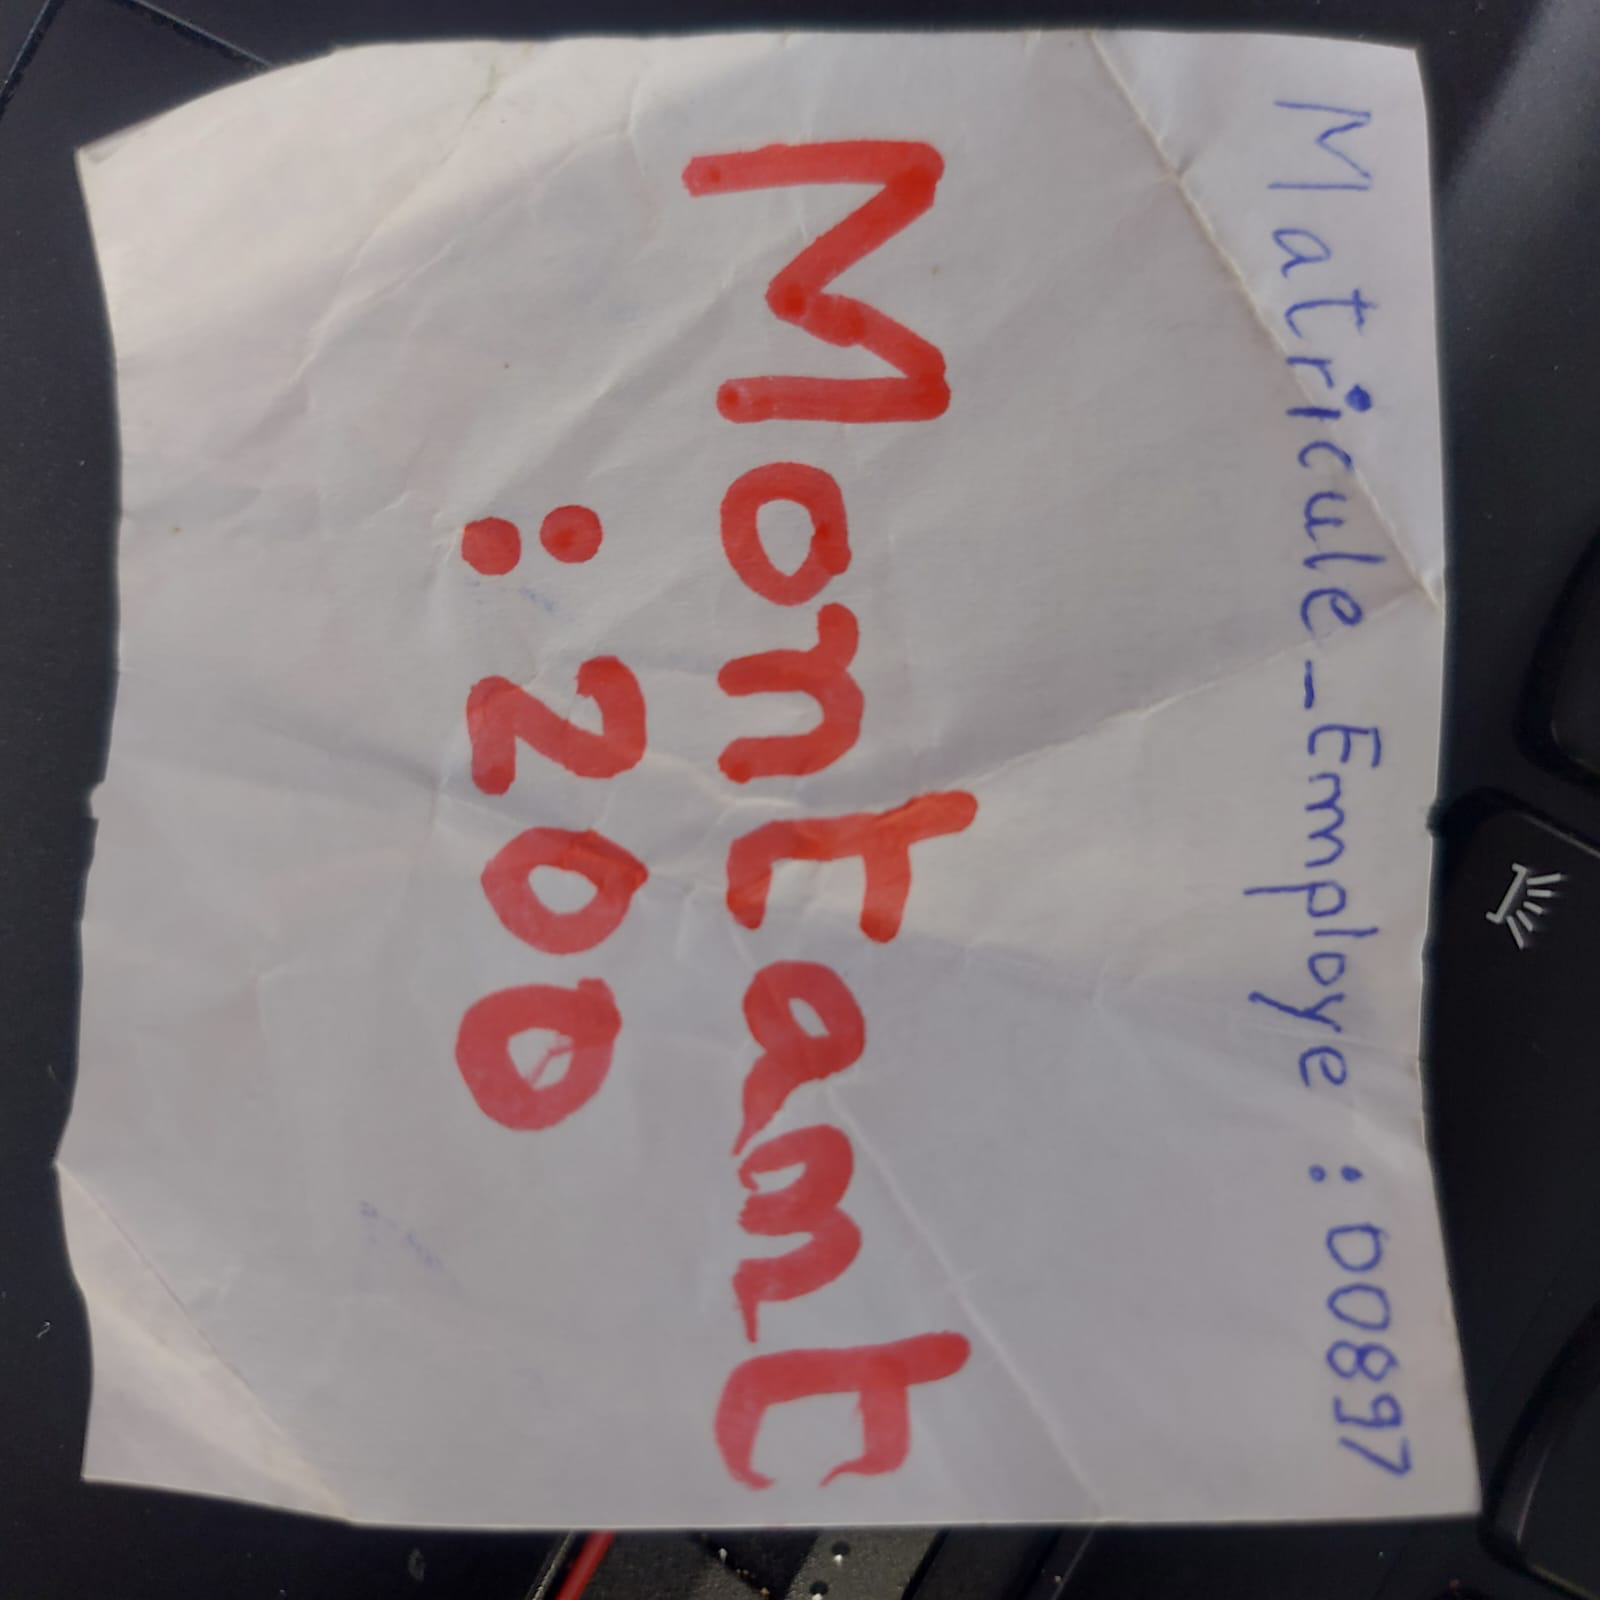 Matricule_Employe : 00897
Montant
: 200